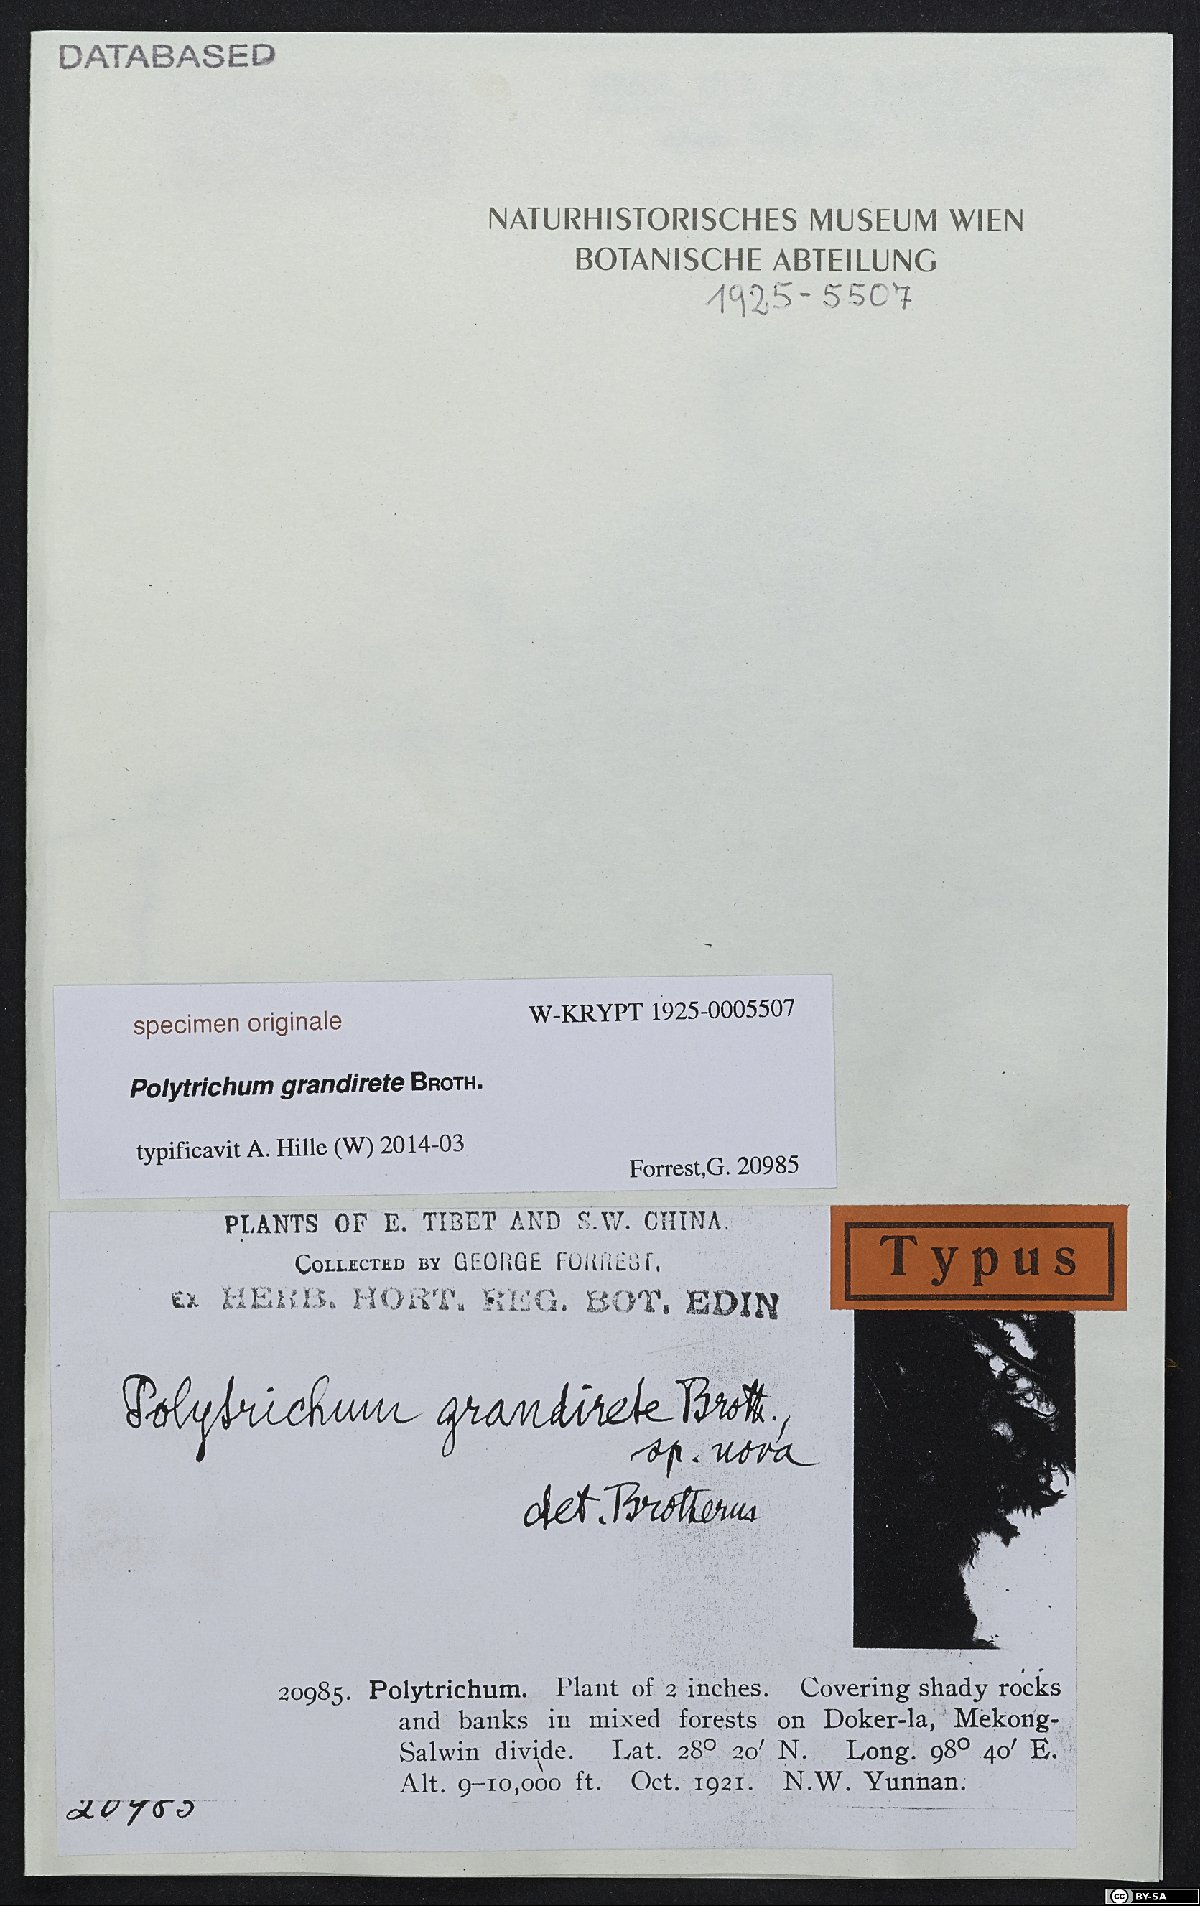 DATABASED
NATURHISTORISCHES MUSEUM WIEN
BOTANISCHE ABTEILUNG
1925-5507
specimen originale
W-KRYPT 1925-0005507
Polytrichum grandirete BROTH.
typificavit A. Hille (W) 2014-03
Forrest,G. 20985
PLANTS OF E. TIBET AND S.W. CHINA.
COLLECTED BY GEORGE FORREST,
ex HERB. HORT. REG. BOT. EDIN
Typus
Polytrichum grandirete Broth.,
sp. nova
det. Brotherus
20985. Polytrichum. Plant of 2 inches. Covering shady rocks
and banks in mixed forests on Doker-la, Mekong-
Salwin divide. Lat. 28° 20′ N. Long. 98° 40′ E.
Alt. 9–10,000 ft. Oct. 1921. N.W. Yunnan.
CC BY-SA